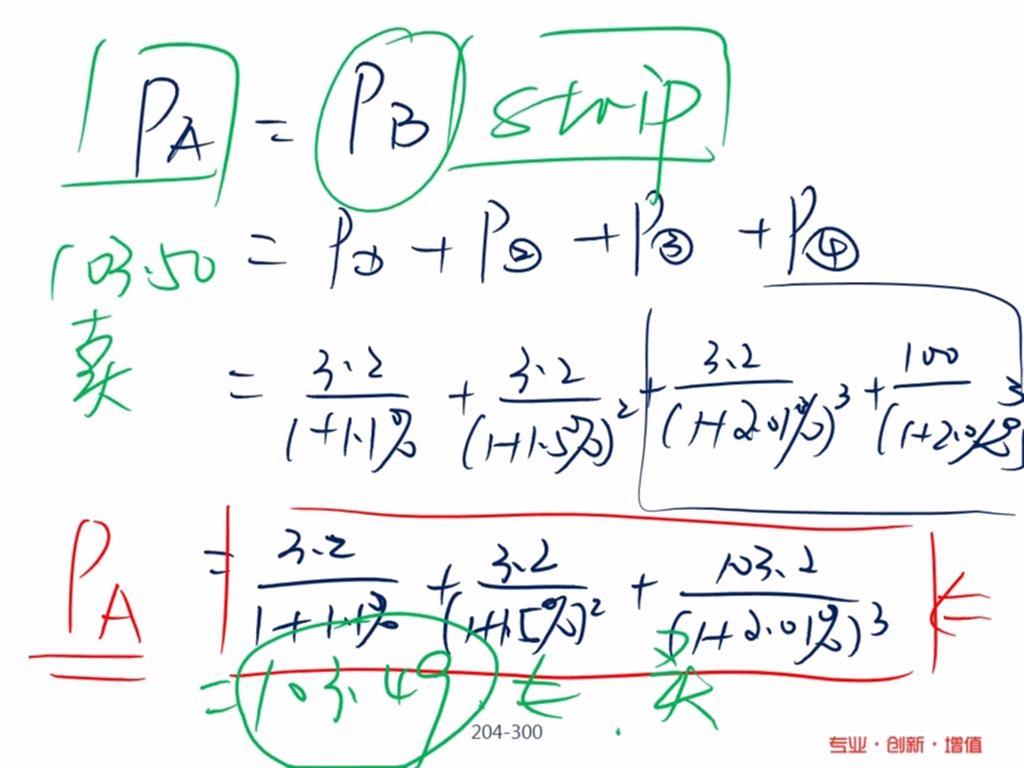 P_A = P_B strip
103.50 = P① + P② + P③ + P④
卖 = 3.2/(1+1.1%) + 3.2/(1+1.5%)² + 3.2/(1+2.01%)³ + 100/(1+2.01%)³
P_A = 3.2/(1+1.1%) + 3.2/(1+1.5%)² + 103.2/(1+2.01%)³
= 103.49
204-300
专业·创新·增值